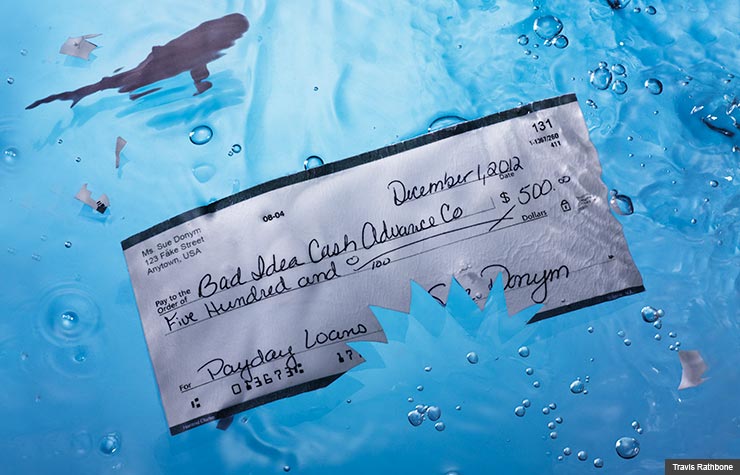 131
1-1367/260
411
08-04
December 1, 2012
Date
Ms. Sue Donym
123 Fake Street
Anytown, USA
Pay to the
Order of
Bad Idea Cash Advance Co
$ 500.00
Five Hundred and 0/100
Dollars
Donym
For
Payday Loans
03673
17
Travis Rathbone